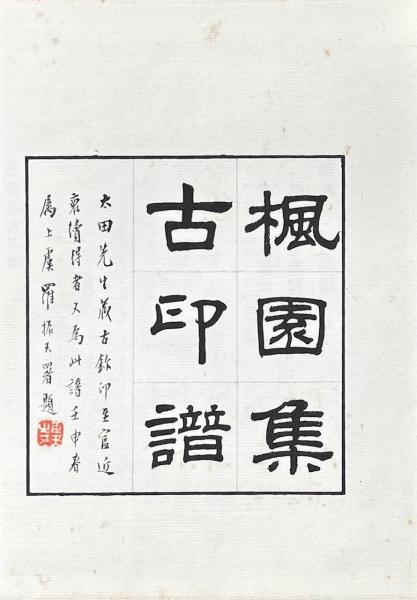 楓園集
古印譜
太田先生藏古鉨印至富近
裒續得者又為此譜壬申春
屬上虞羅振玉署題